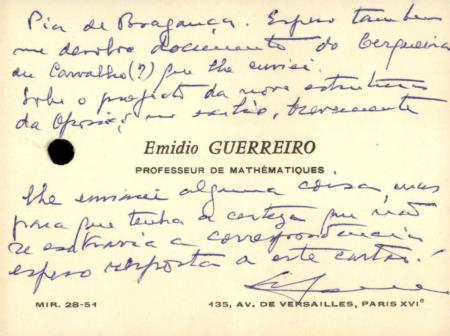 Pia de Bragança. Espero também
me devolva documento do Cerqueira
de Carvalho(?) que lhe enviei.
Sobe o projecto da nova estrutura
da Oposição no exílio, brevemente
Emidio GUERREIRO
PROFESSEUR DE MATHÉMATIQUES
lhe enviarei alguma coisa, mas
para que tenha a certeza que não
se extravia a correspondência
espero resposta a este cartão!
MIR. 28-51
135, AV. DE VERSAILLES, PARIS XVIᵉ